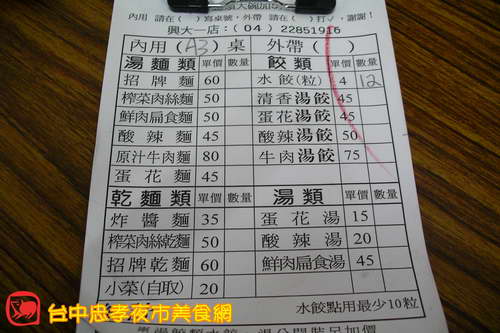 內用 請在( )寫桌號，外帶 請在( )打✓，謝謝！
興大一店：(04) 22851916
內用(A3)桌 外帶( )
湯麵類 單價 數量 餃類 單價 數量
招牌麵 60 水餃(粒) 4 12
榨菜肉絲麵 50 清香湯餃 45
鮮肉扁食麵 50 蛋花湯餃 45
酸辣麵 45 酸辣湯餃 50
原汁牛肉麵 80 牛肉湯餃 75
蛋花麵 45
乾麵類 單價 數量 湯類 單價 數量
炸醬麵 35 蛋花湯 15
榨菜肉絲乾麵 50 酸辣湯 20
招牌乾麵 60 鮮肉扁食湯 45
小菜(自取) 20
水餃點用最少10粒
台中忠孝夜市美食網